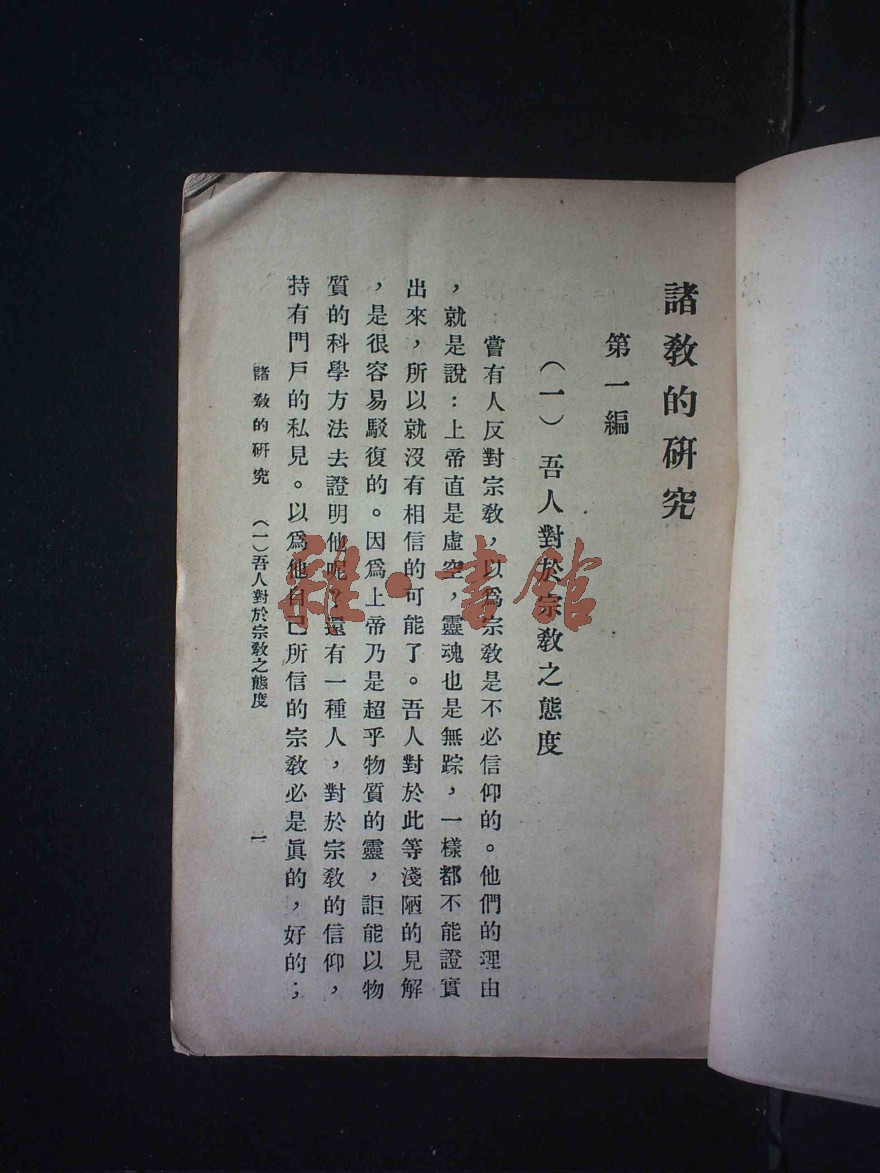 諸教的研究
第一編
（一）吾人對於宗教之態度
嘗有人反對宗教，以爲宗教是不必信仰的。他們的理由
，就是說：上帝直是虛空，靈魂也是無踪，一樣都不能證實
出來，所以就沒有相信的可能了。吾人對於此等淺陋的見解
，是很容易駁復的。因爲上帝乃是超乎物質的靈，詎能以物
質的科學方法去證明他呢？還有一種人，對於宗教的信仰，
持有門戶的私見。以爲他自己所信的宗教必是眞的，好的；
諸教的研究　（一）吾人對於宗教之態度　一
雜·書館